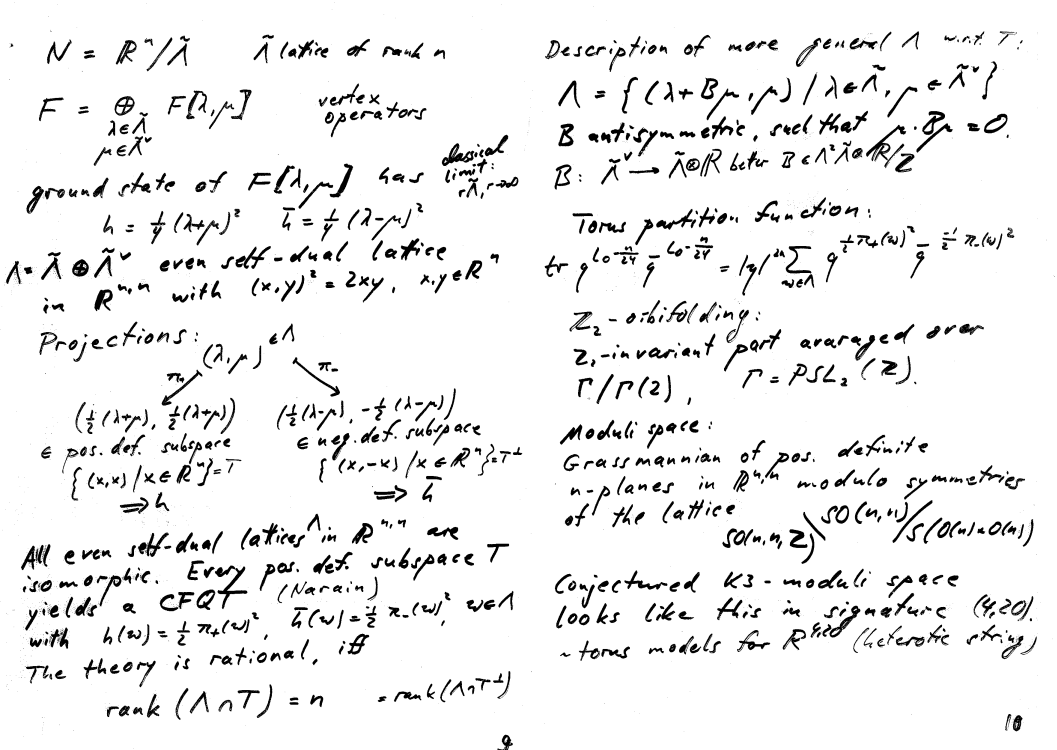 N = ℝⁿ/Λ̃   Λ̃ lattice of rank n
F = ⊕ F[λ,μ]   vertex operators
λ∈Λ̃
μ∈Λ̃ᵛ
ground state of F[λ,μ] has   classical limit: rΛ̃, r→∞
h = ¼ (λ+μ)²   h̄ = ¼ (λ-μ)²
Λ = Λ̃ ⊕ Λ̃ᵛ even self-dual lattice
in ℝⁿ,ⁿ with (x,y)² = 2xy, x,y∈ℝⁿ
Projections:
(λ,μ) ∈Λ
π₊   π₋
(½(λ+μ), ½(λ+μ))   (½(λ-μ), -½(λ-μ))
∈ pos. def. subspace   ∈ neg. def. subspace
{(x,x) | x∈ℝⁿ} = T   {(x,-x) | x∈ℝⁿ} = T^⊥
⟹ h   ⟹ h̄
All even self-dual lattices Λ in ℝⁿ,ⁿ are
isomorphic. Every pos. def. subspace T
yields a CFQT (Narain)
with h(w) = ½ π₊(w)², h̄(w) = ½ π₋(w)², w∈Λ
The theory is rational, iff
rank (Λ∩T) = n   = rank(Λ∩T^⊥)
9
Description of more general Λ w.r.t. T:
Λ = {(λ+Bμ, μ) | λ∈Λ̃, μ∈Λ̃ᵛ}
B antisymmetric, such that μ·Bμ = 0.
B: Λ̃ᵛ → Λ̃⊗ℝ better B∈Λ²Λ̃⊗ℝ/Z
Torus partition function:
tr q^{L₀-n/24} q̄^{L̄₀-n/24} = |η|^{2n} Σ_{w∈Λ} q^{½π₊(w)²} q̄^{-½π₋(w)²}
ℤ₂-orbifolding:
Z₂-invariant part avaraged over
Γ/Γ(2), Γ = PSL₂(Z).
Moduli space:
Grassmannian of pos. definite
n-planes in ℝⁿ,ⁿ modulo symmetries
of the lattice
SO(n,n,Z)\SO(n,n)/S(O(n)×O(n))
Conjectured K3-moduli space
looks like this in signature (4,20).
~ torus models for ℝ⁴,²⁰ (heterotic string)
10